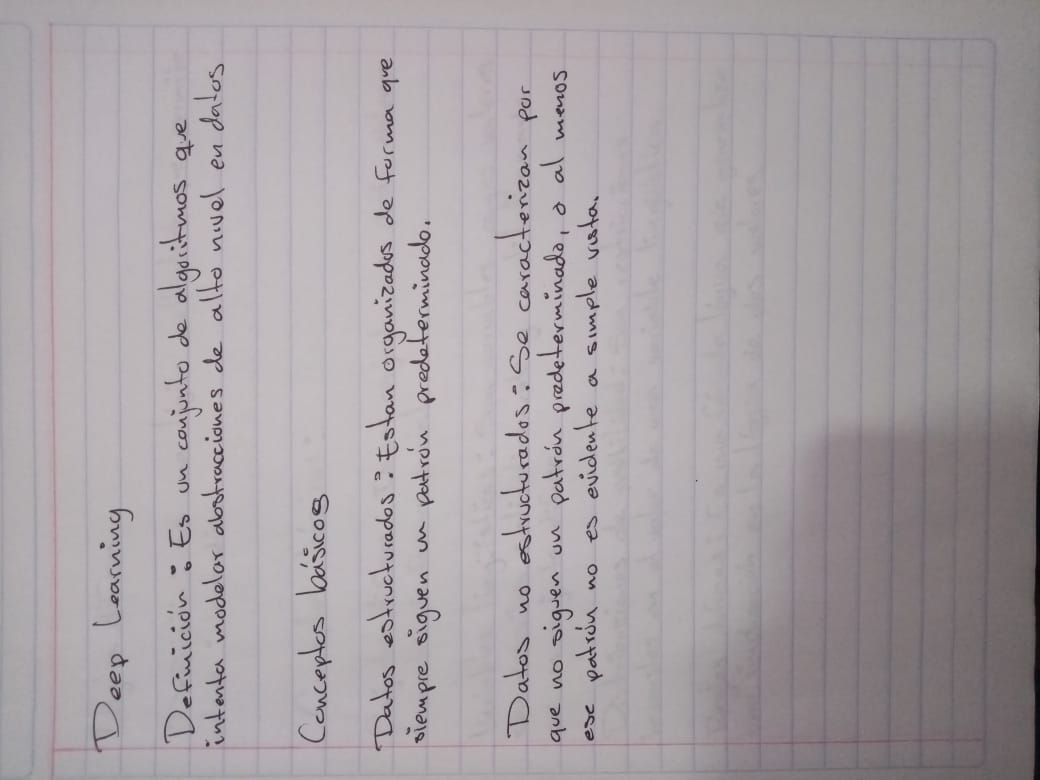 Deep Learning
Definición: Es un conjunto de algoritmos que
intenta modelar abstracciones de alto nivel en datos
Conceptos básicos
Datos estructurados: Estan organizados de forma que
siempre siguen un patrón predeterminado.
Datos no estructurados: Se caracterizan por
que no siguen un patrón predeterminado, o al menos
ese patrón no es evidente a simple vista.